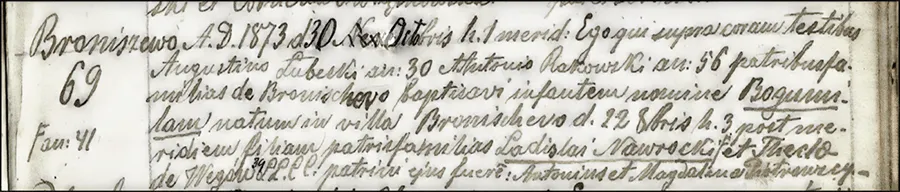 ski et
Broniszewo A.D. 1873 d 30 Octobris h. 1 merid: Ego qui supra coram testibus
69
Augustino Lubecki an: 30 Antonio Rakowski an: 56 patribusfa-
milias de Bronischevo baptisavi infantem nomine Bogumi-
Fam: 41
lam natum in villa Bronischevo d. 22 8bris h. 3 post me-
ridiem filiam patrisfamilias Ladislai Nawrocki et Theclæ
de 39 L.L. C.C: patrini ejus fuere: Antonius et Magdalena